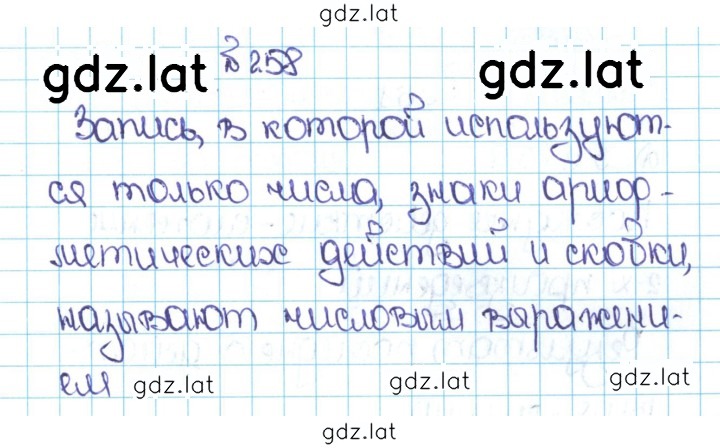 gdz.lat
gdz.lat № 258 gdz.lat
Запись, в которой используют-
ся только числа, знаки ариф-
метических действий и скобки,
называют числовым выражени-
ем
gdz.lat gdz.lat gdz.lat
gdz.lat